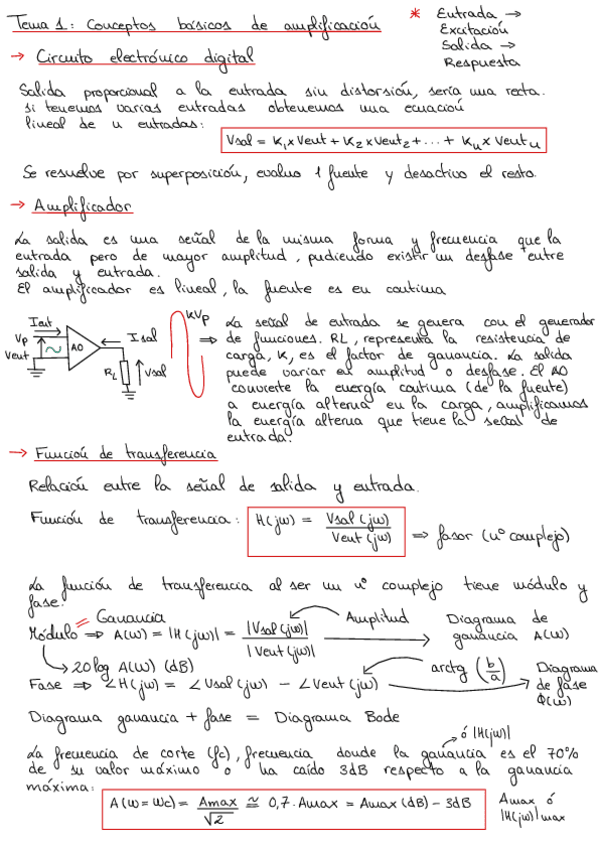 Tema 1: Conceptos básicos de amplificación
* Entrada →
Excitación
Salida →
Respuesta
→ Circuito electrónico digital
Salida proporcional a la entrada sin distorsión, sería una recta.
si tenemos varias entradas obtenemos una ecuación
lineal de n entradas:
Vsal = K₁ x Vent + K₂ x Vent₂ + ... + Kₙ x Ventₙ
Se resuelve por superposición, evaluo 1 fuente y desactivo el resto.
→ Amplificador
La salida es una señal de la misma forma y frecuencia que la
entrada pero de mayor amplitud, pudiendo existir un desfase entre
salida y entrada.
El amplificador es lineal, la fuente es en continua
Ient
Vp
Vent
AO
Isal
RL
Vsal
KVp
⇒ La señal de entrada se genera con el generador
de funciones. RL, representa la resistencia de
carga, K, es el factor de ganancia. La salida
puede variar en amplitud o desfase. El AO
convierte la energía continua (de la fuente)
a energía alterna en la carga, amplificamos
la energía alterna que tiene la señal de
entrada.
→ Función de transferencia
Relación entre la señal de salida y entrada.
Función de transferencia: H(jω) = Vsal(jω) / Vent(jω) ⇒ fasor (nº complejo)
La función de transferencia al ser un nº complejo tiene módulo y
fase.
= Ganancia
Módulo ⇒ A(ω) = |H(jω)| = |Vsal(jω)| / |Vent(jω)|
Amplitud
Diagrama de
ganancia A(ω)
20log A(ω) (dB)
Fase ⇒ ∠H(jω) = ∠Vsal(jω) - ∠Vent(jω)
arctg (b/a)
Diagrama
de fase
Φ(ω)
Diagrama ganancia + fase = Diagrama Bode
ó |H(jω)|
La frecuencia de corte (fc), frecuencia donde la ganancia es el 70%
de su valor máximo o ha caído 3dB respecto a la ganancia
máxima:
A(ω = ωc) = Amax / √2 ≅ 0,7 · Amax = Amax (dB) - 3dB
Amax ó
|H(jω)| max